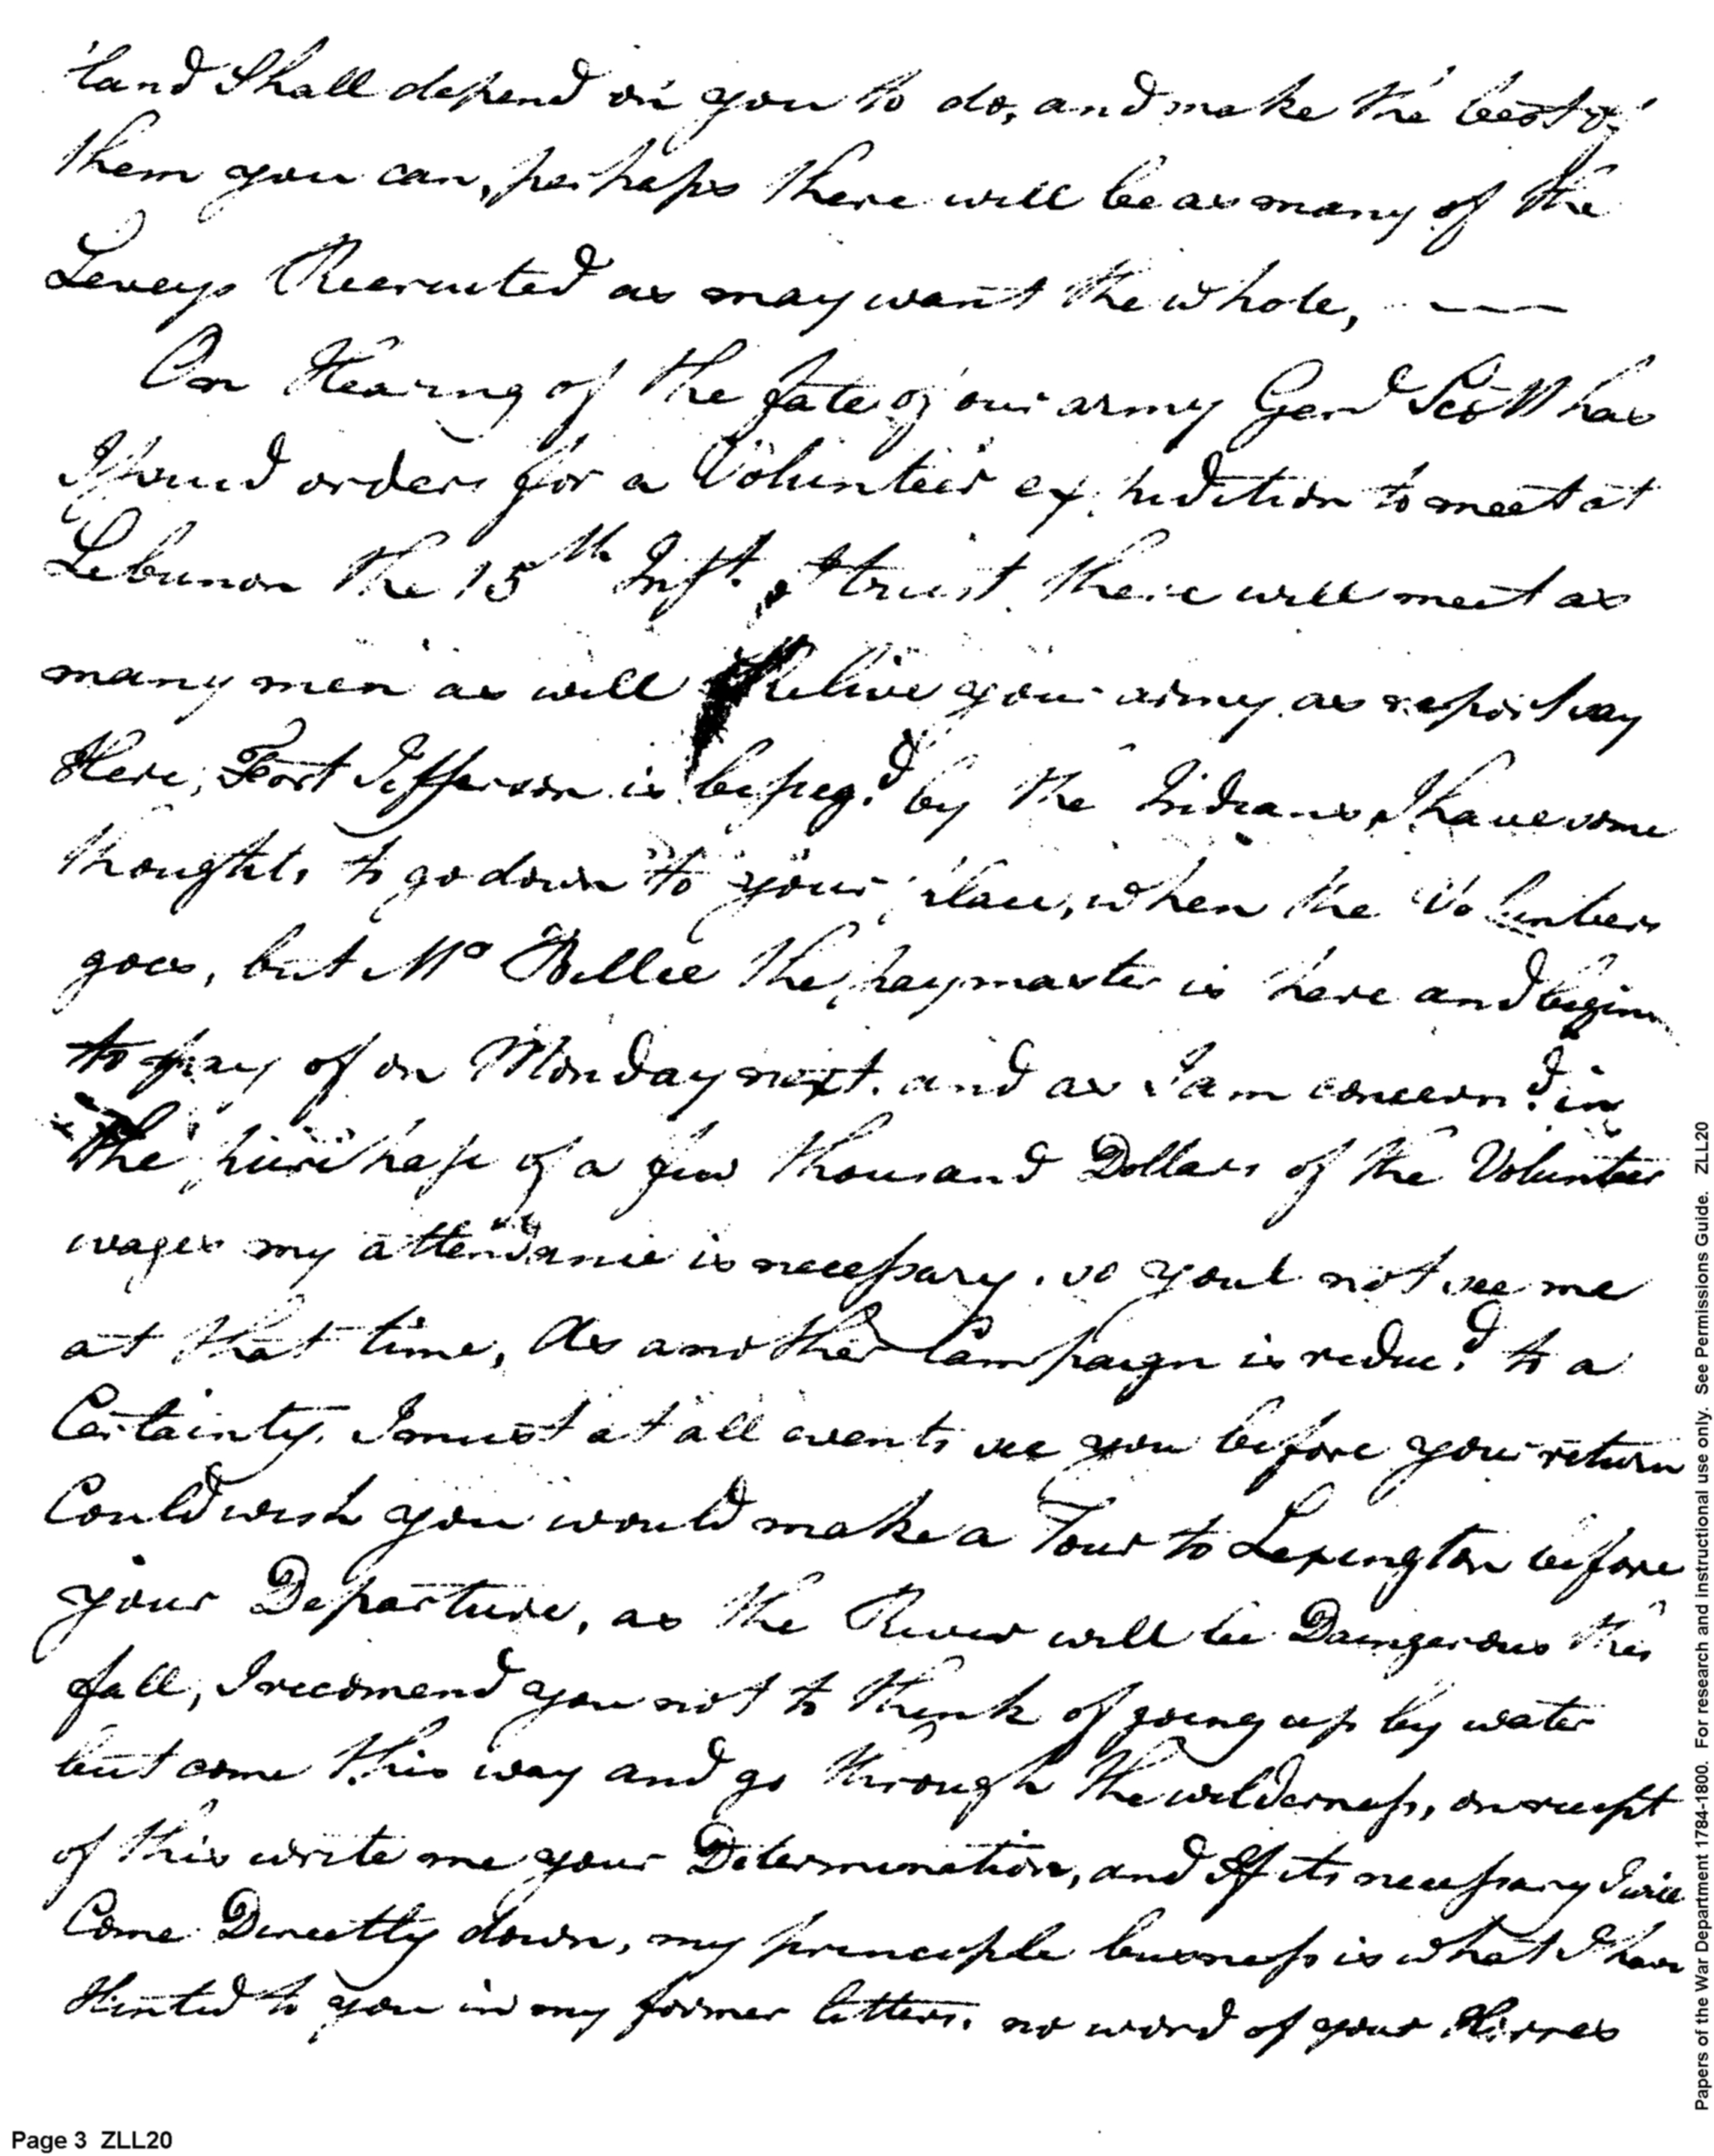 land Shall depend on you to do, and make the best of
them you can, perhaps there will be as many of the
Leveys Recruited as may want the whole, ———
On Hearing of the fate of our army Genl Scott has
Issued orders for a Volunteer expedition to meet at
Lebunon the 15th Inst. I trust there will meet as
many men as will Relive your army as report say
Here, Fort Jefferson is besieg.d by the Indians, I have some
thoughts to go down to your place, when the Volunteers
goes, but Mr Bellee the paymaster is here and begins
to pay of on Monday next. and as I am concern.d in
the purchase of a few thousand Dollars of the Volunteer
wages my attendance is necessary. so youl not see me
at that time, As another Campaign is reduc.d to a
Certainty. I must at all events see you before your return
Could wish you would make a Tour to Lexington before
your Departure, as the River will be Daingerous this
fall, I recomend you not to think of going up by water
but come this way and go through the wilderness, on receipt
of this write me your Determination, and If its necessary I will
Come Directly down, my principle business is what I have
Hinted to you in my former letters. no word of your Horses
Page 3 ZLL20
Papers of the War Department 1784-1800. For research and instructional use only. See Permissions Guide. ZLL20